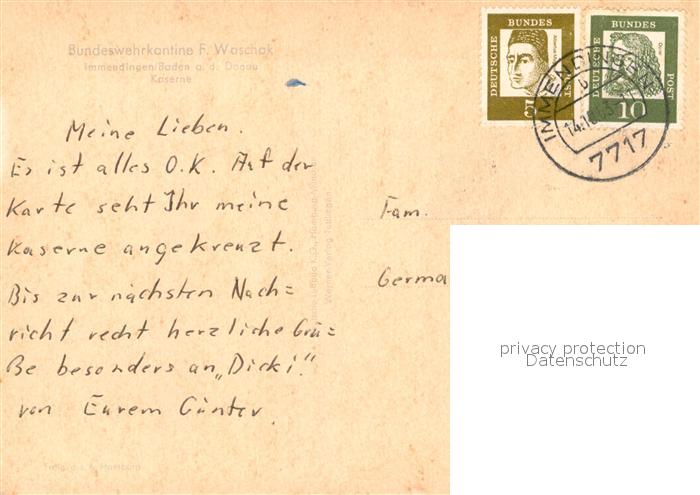 Bundeswehrkantine F. Waschak
Immendingen/Baden a. d. Donau
Kaserne
Meine Lieben.
Es ist alles O.K. Auf der
Karte seht Ihr meine
Kaserne angekreuzt.
Bis zur nächsten Nach=
richt recht herzliche Grü=
ße besonders an „Dicki."
von Eurem Günter.
DEUTSCHE BUNDES POST
5
DEUTSCHE BUNDES POST
10
IMMENDINGEN
7717
Fam.
Germa
privacy protection
Datenschutz